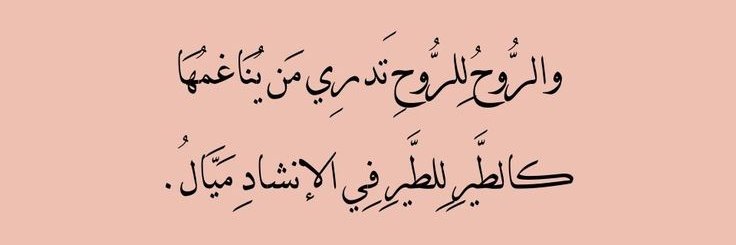 والرُّوحُ لِلرُّوحِ تَدري مَن يُنَاغمُهَا
كالطَّيرِ لِلطَّيرِ فِي الإنشادِ مَيَّالُ.